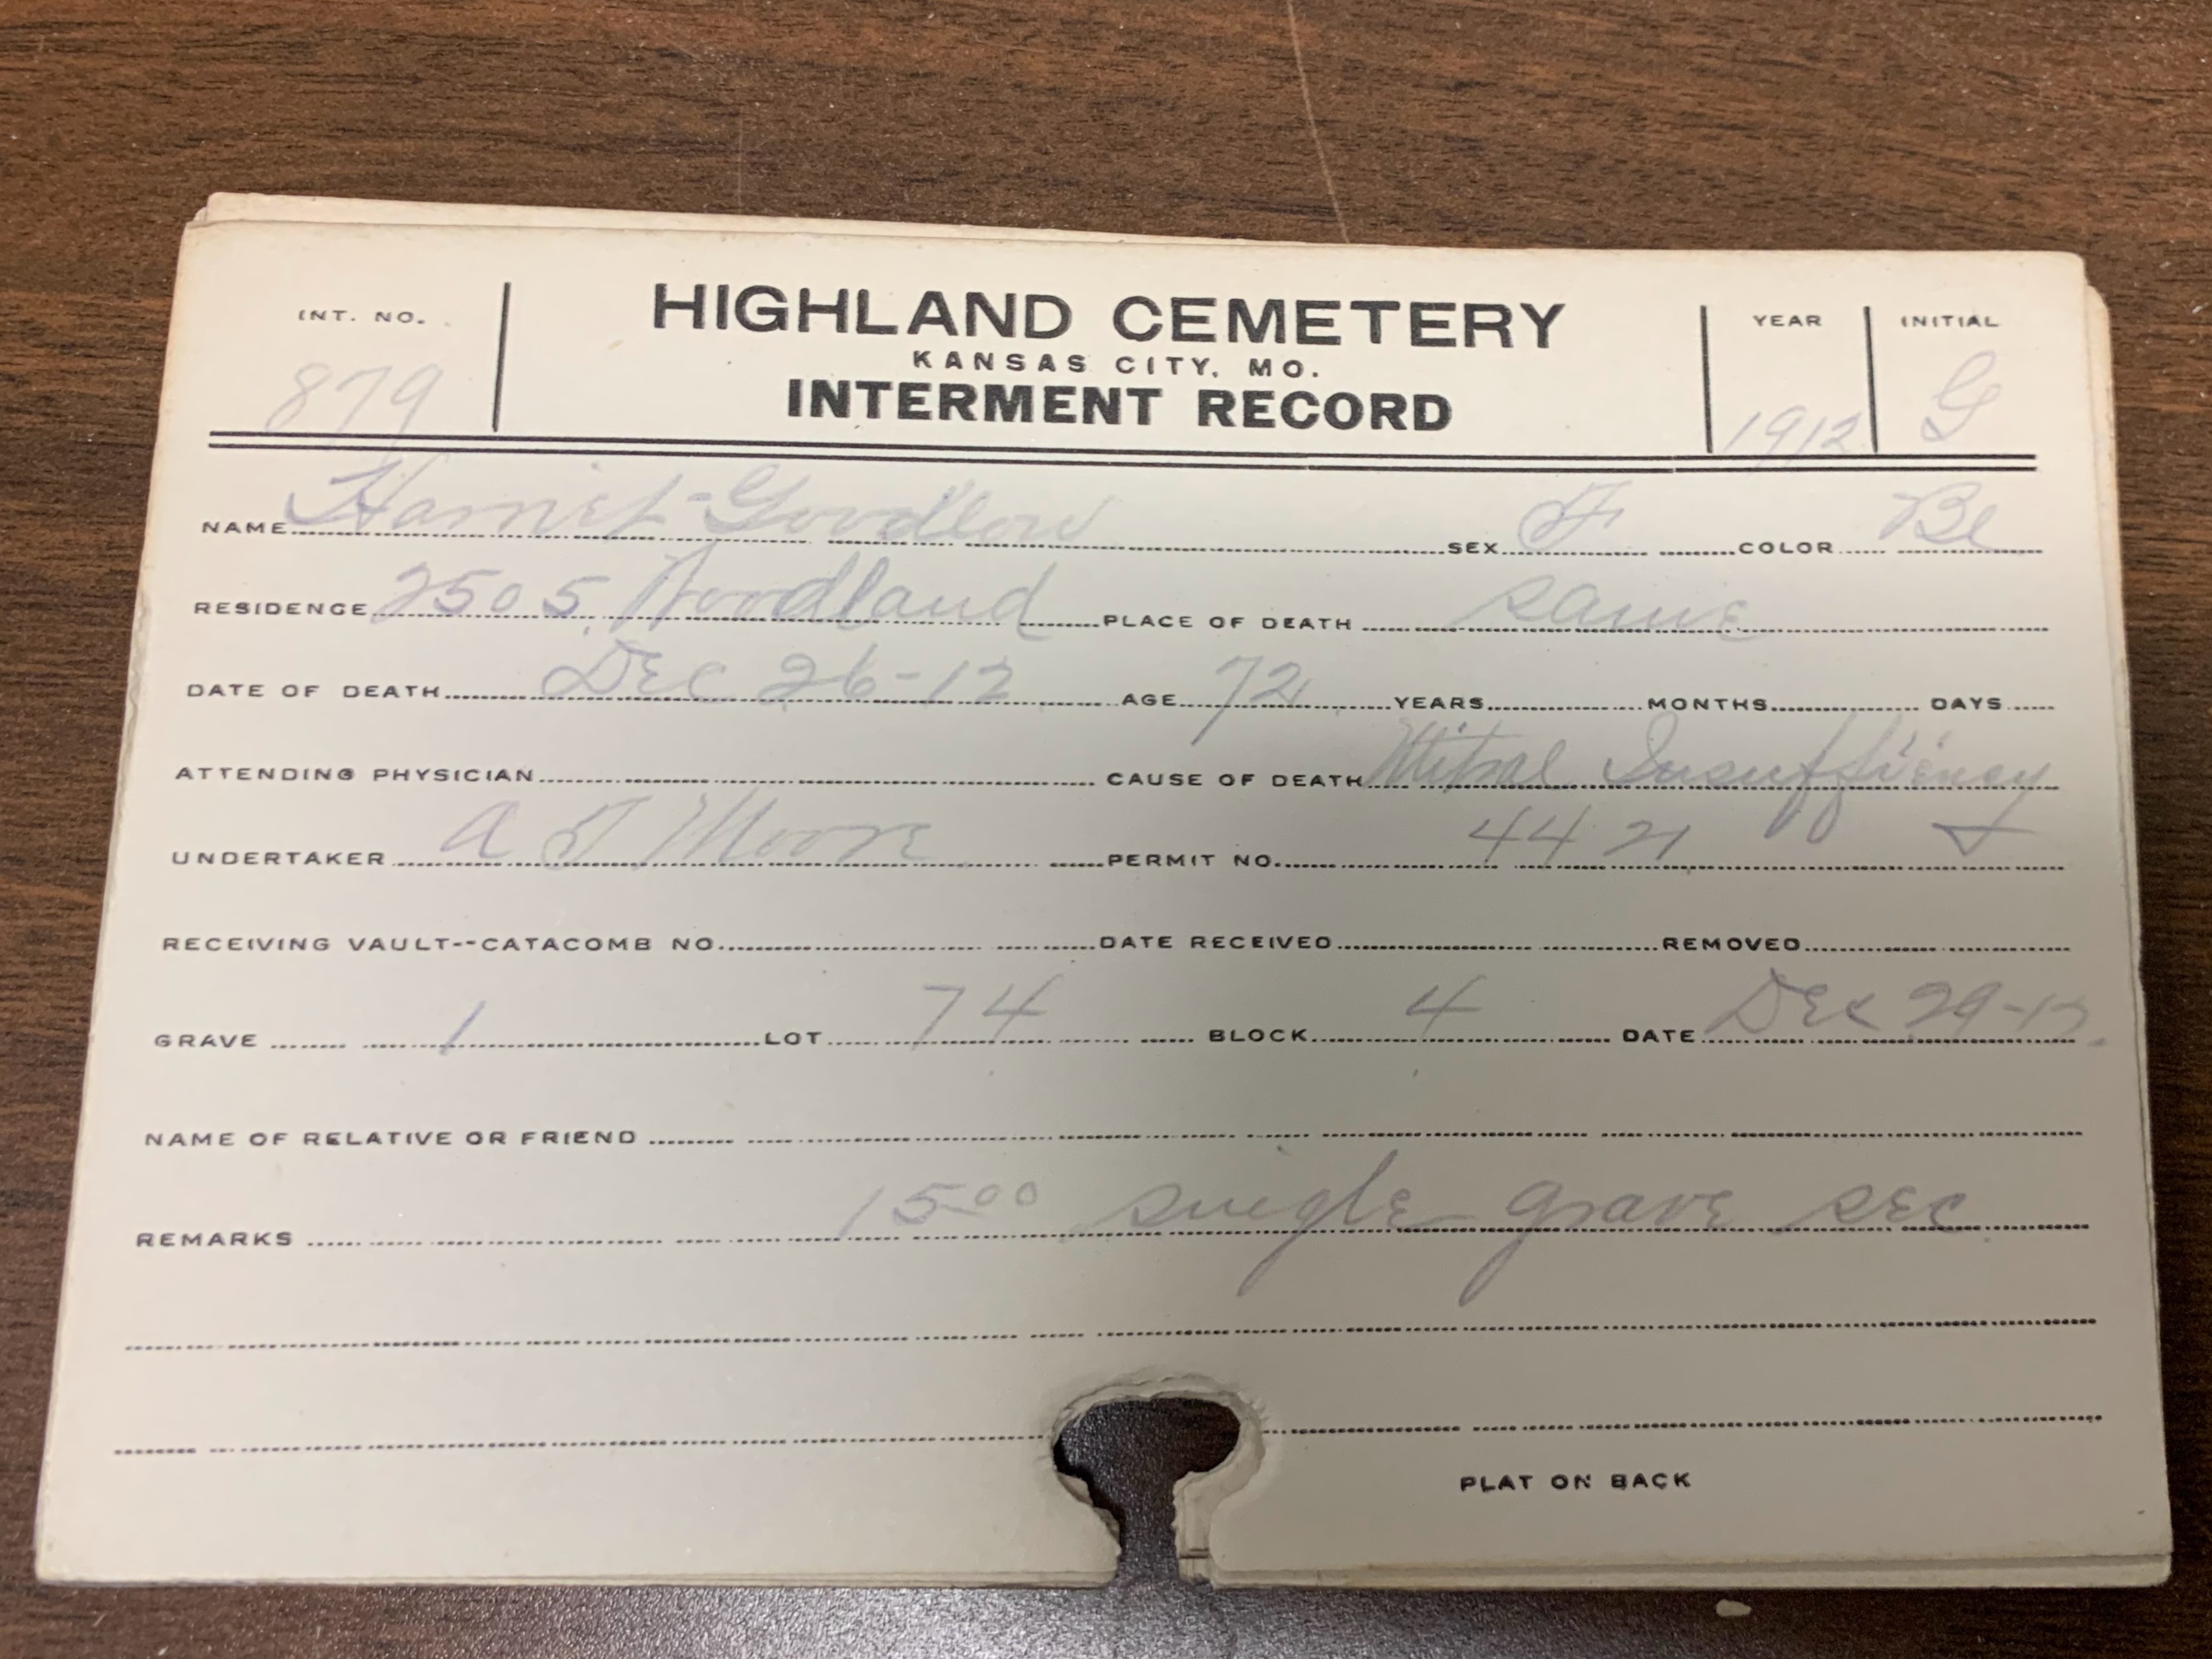 INT. NO. HIGHLAND CEMETERY YEAR INITIAL
KANSAS CITY, MO.
879 INTERMENT RECORD 1912 G
NAME Harriet Goodlow SEX F COLOR Bl
RESIDENCE 2505 Woodland PLACE OF DEATH same
DATE OF DEATH Dec 26-12 AGE 72 YEARS MONTHS DAYS
ATTENDING PHYSICIAN CAUSE OF DEATH Mitral Insuffiency
UNDERTAKER A T Moore PERMIT NO. 4421
RECEIVING VAULT--CATACOMB NO. DATE RECEIVED REMOVED
GRAVE 1 LOT 74 BLOCK 4 DATE Dec 29-12
NAME OF RELATIVE OR FRIEND
REMARKS 1500 single grave sec
PLAT ON BACK